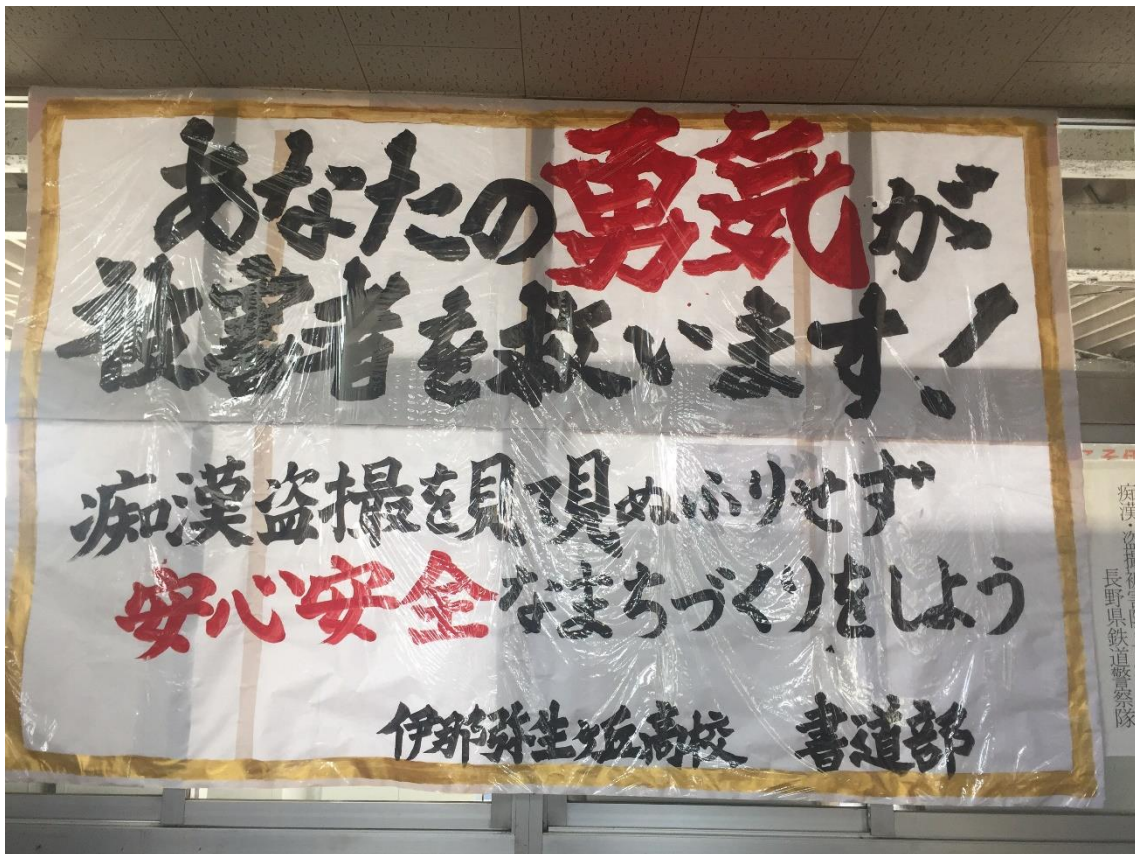 あなたの勇気が
被害者を救います!
痴漢盗撮を見て見ぬふりせず
安心安全なまちづくりをしよう
伊那弥生ヶ丘高校 書道部
痴漢・盗撮被害
長野県鉄道警察隊